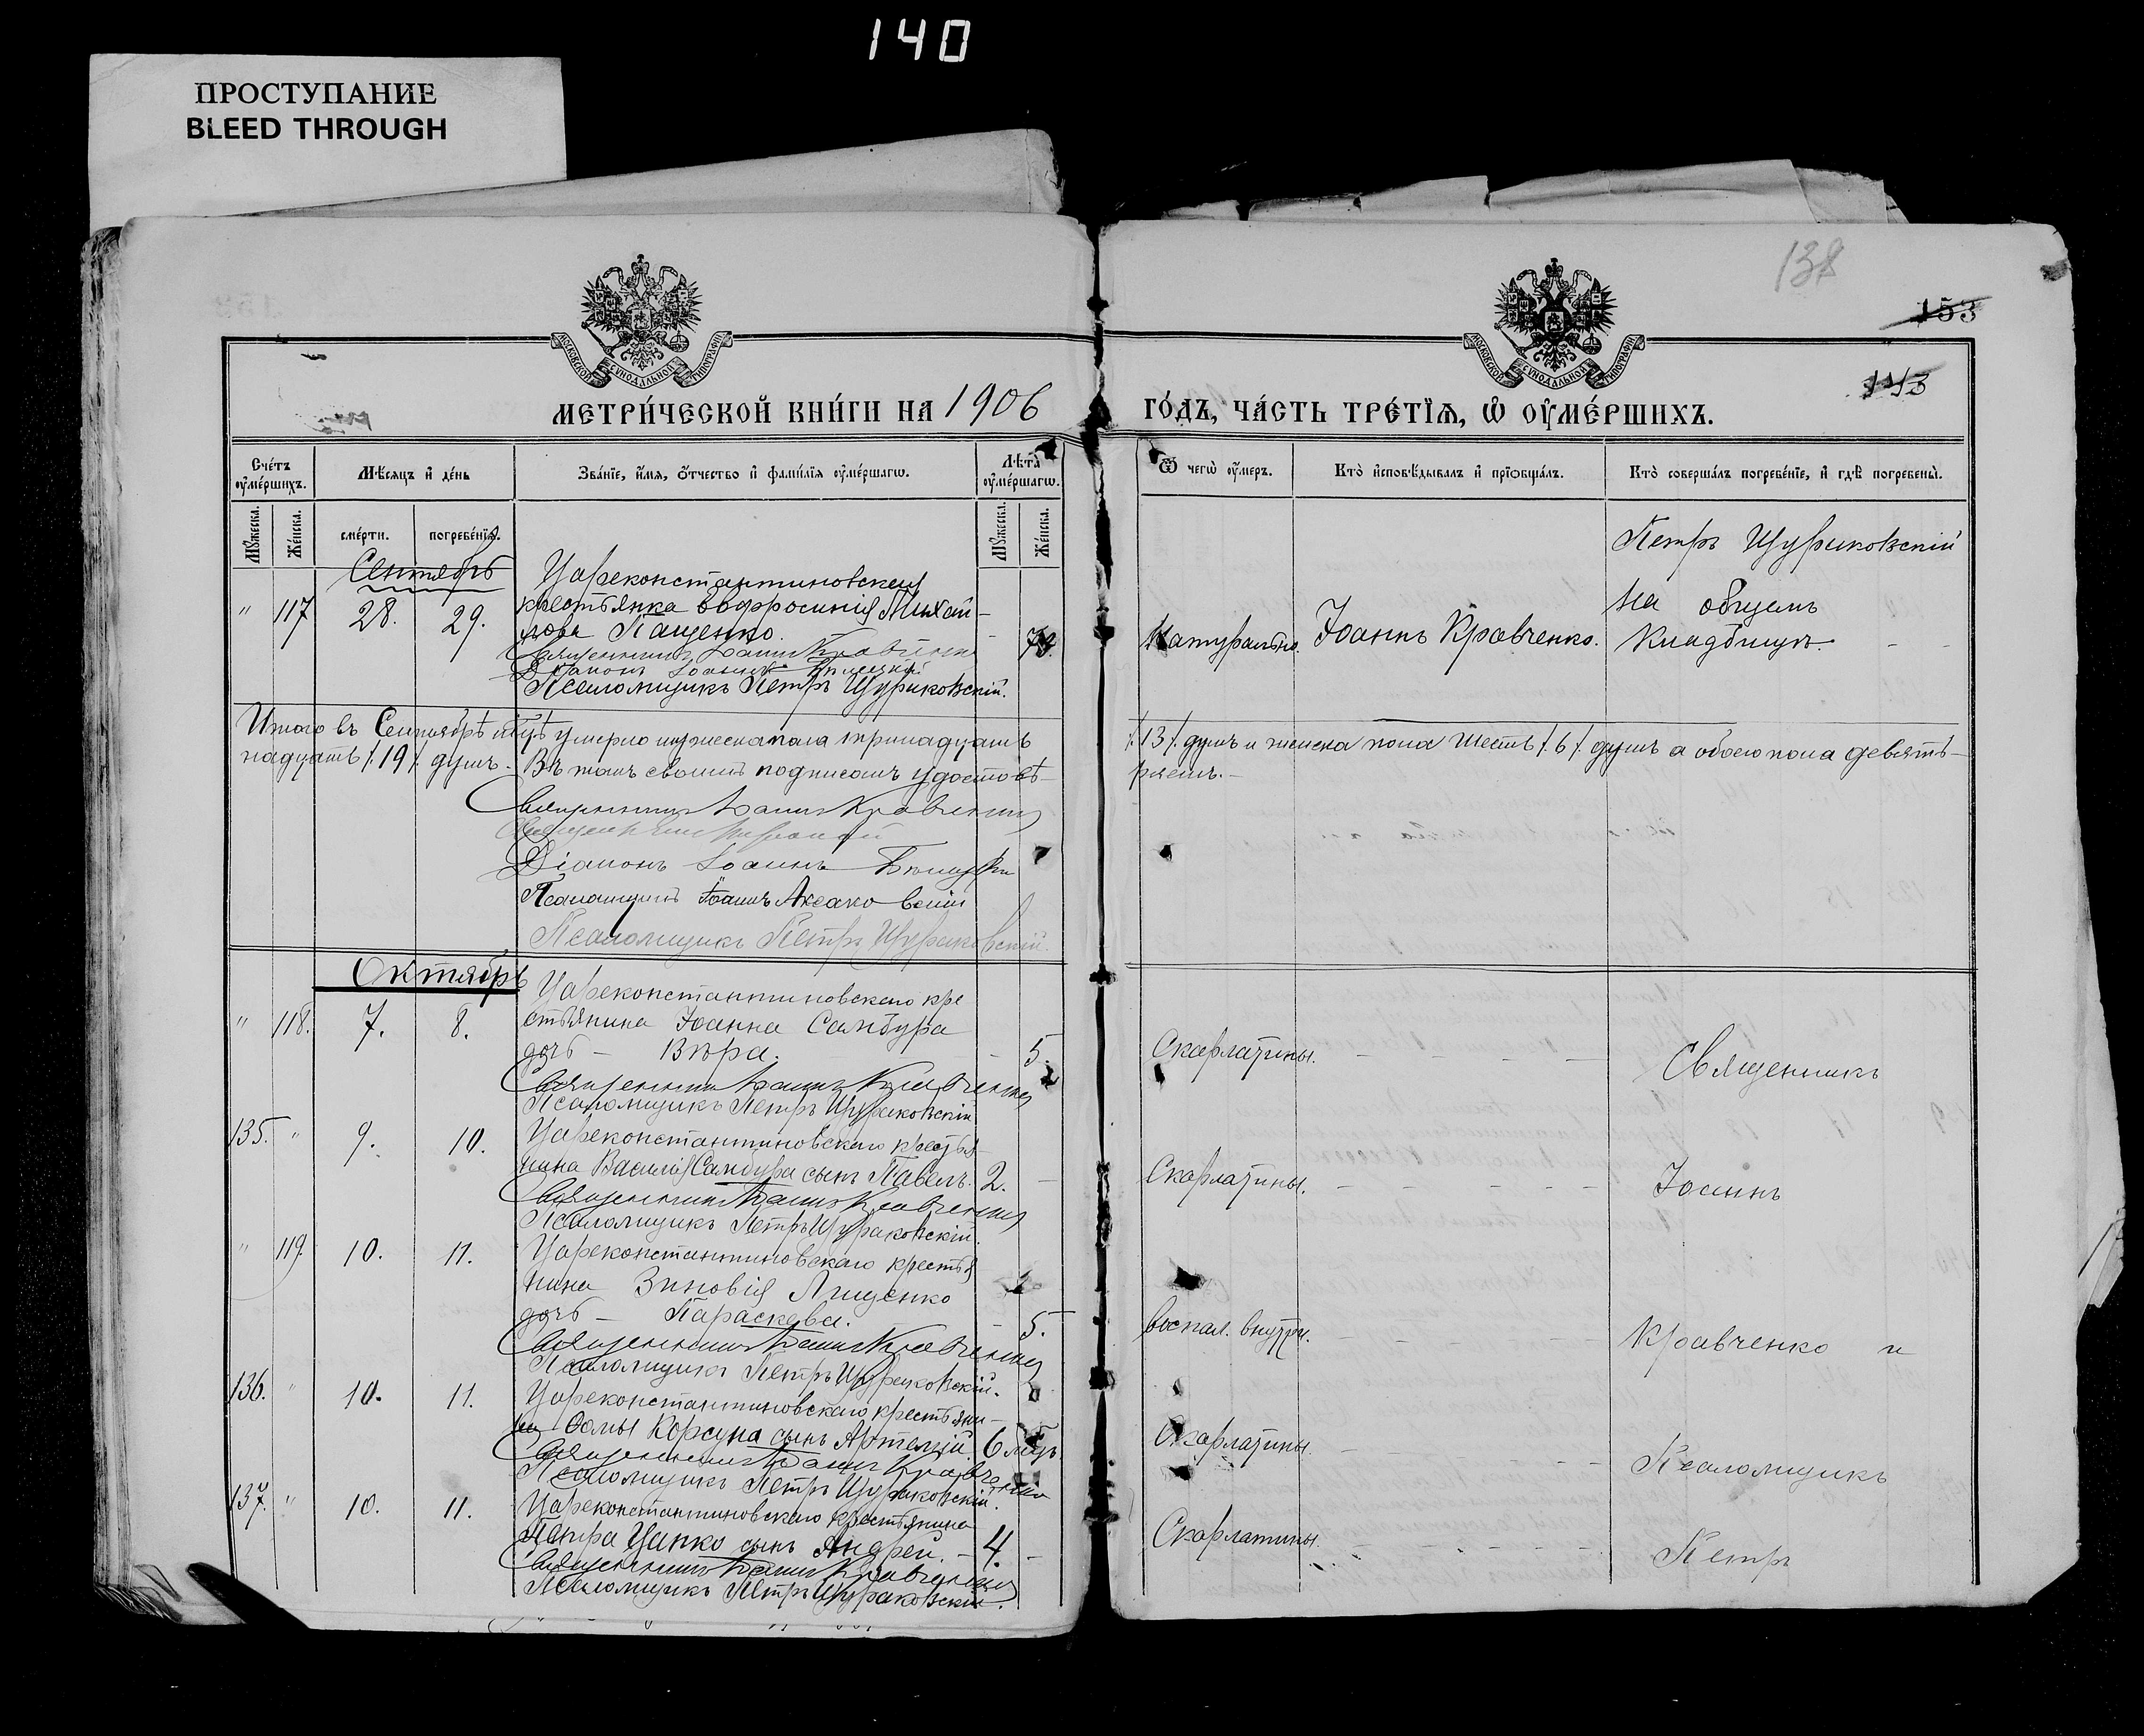 140
ПРОСТУПАНИЕ
BLEED THROUGH
138
153
143
МОСКОВСКОЙ СѴНОДАЛЬНОЙ ТИПОГРАФІИ
МОСКОВСКОЙ СѴНОДАЛЬНОЙ ТИПОГРАФІИ
МЕТРИ́ЧЕСКОЙ КНИ́ГИ НА 1906
ГО́ДЪ, ЧА́СТЬ ТРЕ́ТІѦ, Ѡ ОУМЕ́РШИХЪ.
Сче́тъ оуме́ршихъ.
Мѣ́сяцъ и де́нь
Зва́ніе, и́мя, о́тчество и фами́лія оуме́ршагѡ.
Лѣ́та оуме́ршагѡ.
Ѿ чегѡ̀ оу́меръ.
Кто̀ исповѣ́дывалъ и пріѡбща́лъ.
Кто̀ соверша́лъ погребе́ніе, и гдѣ̀ погребены̀.
Му́жеска.
Же́нска.
сме́рти.
погребе́нія.
Му́жеска.
Же́нска.
Сентябрь
Цареконстантиновская
" 117 28. 29. крестьянка Евфросинія Михай-
лова Пащенко. -
Священникъ Іоаннъ Кравченко
Діаконъ Іоаннъ
Псаломщикъ Петръ Щуриковскій.
Натурально. Іоаннъ Кравченко.
Петръ Щуриковскій
на общемъ
кладбищѣ. - -
Итого въ Сентябрѣ м-цѣ умерло мужеска пола тринадцать
/13/ душъ и женска пола шесть /6/ душъ а обоего пола девять-
надцать /19/ душъ. - Въ томъ своимъ подписомъ удостовѣ-
ряемъ. -
Священникъ Іоаннъ Кравченко
Священникъ
Діаконъ Іоаннъ
Псаломщикъ Іоаннъ Аксаковскій
Псаломщикъ Петръ Щуриковскій.
Октябрь
Цареконстантиновскаго кре
" 118. 7. 8. стьянина Іоанна Самбура
дочь - Вѣра. - 5.
Священникъ Іоаннъ Кравченко
Псаломщикъ Петръ Щуриковскій
Скарлатины. - - - -
Священникъ
135. " 9. 10. Цареконстантиновскаго крестья-
нина Василія Самбура сынъ Павелъ. 2. -
Священникъ Іоаннъ Кравченко
Псаломщикъ Петръ Щуриковскій.
Скарлатины. - - - - -
Іоаннъ
" 119 10. 11. Цареконстантиновскаго крестья
нина Зиновія Лященко
дочь - Параскева. - 5.
Священникъ Іоаннъ Кравченко
Псаломщикъ Петръ Щуриковскій.
воспал. внутри. - - - - -
Кравченко и
136. " 10. 11. Цареконстантиновскаго крестьяни-
на Ѳомы Корсуна сынъ Артемій. 6 мѣс.
Священникъ Іоаннъ Кравченко
Псаломщикъ Петръ Щуриковскій.
Скарлатины. - - - - -
Псаломщикъ
137. " 10. 11. Цареконстантиновскаго крестьянина
Петра Цапко сынъ Андрей. - 4. -
Священникъ Іоаннъ Кравченко
Псаломщикъ Петръ Щуриковскій.
Скарлатины. - - - - -
Петръ